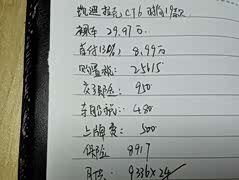 凯迪拉克 CT6 时尚19款
裸车 29.97万
首付(30%) 8.99万
购置税: 25615
交强险: 950
车船税: 480
上牌费: 500
保险 8917
月供: 9336×24